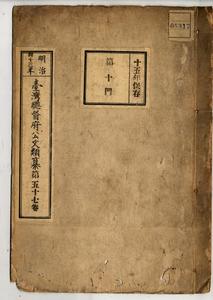 十五年保存
第十門
明治
臺灣總督府公文類纂第五十七卷